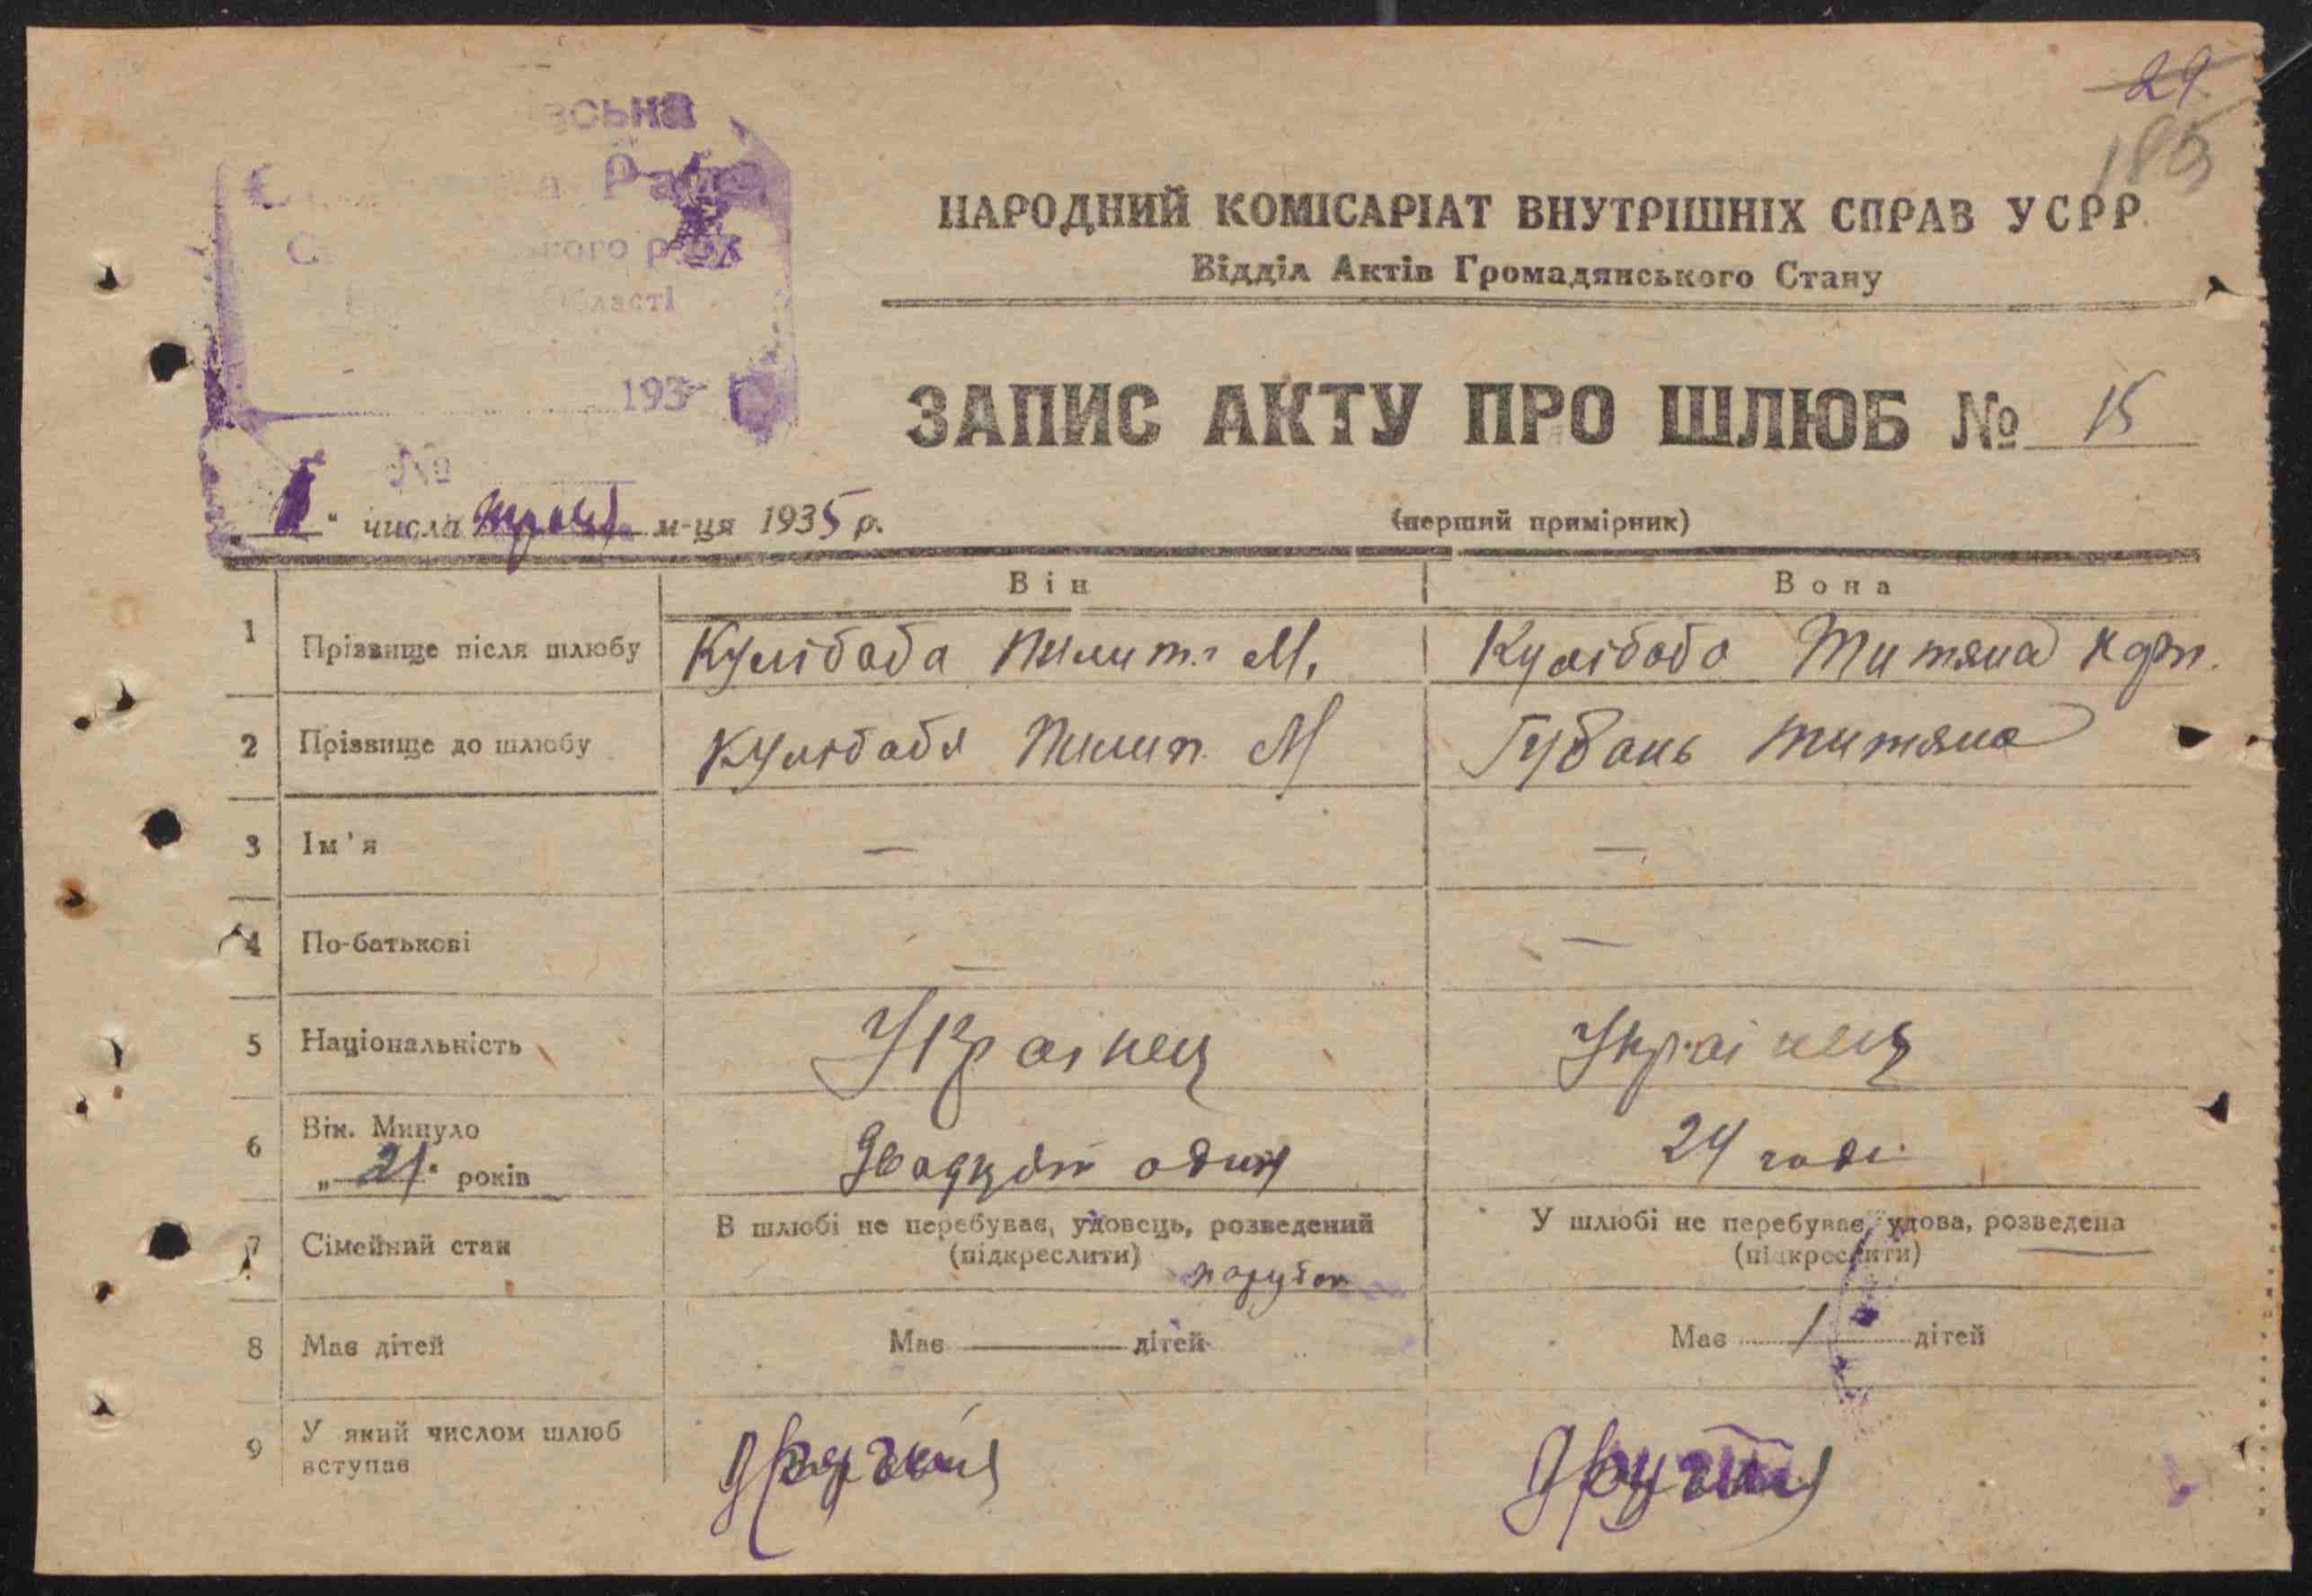 29
185
вська
Рада
кого рай
Області
193
№
НАРОДНИЙ КОМІСАРІАТ ВНУТРІШНІХ СПРАВ УСРР
Відділ Актів Громадянського Стану
ЗАПИС АКТУ ПРО ШЛЮБ № 15
(перший примірник)
числа м-ця 1935 р.
Він
Вона
1 Прізвище після шлюбу Кулібаба Пилип. М. Кулібаба Титяна Карп.
2 Прізвище до шлюбу Кулібабя Пилип. М Губань Титяна
3 Ім'я — —
4 По-батькові — —
5 Національність Українец Українец
6 Вік. Минуло
„21" років Двадцять один 24 годі
7 Сімейний стан
В шлюбі не перебуває, удовець, розведений
(підкреслити)
парубок
У шлюбі не перебуває, удова, розведена
(підкреслити)
8 Має дітей Має — дітей Має 1 дітей
9 У який числом шлюб
вступає